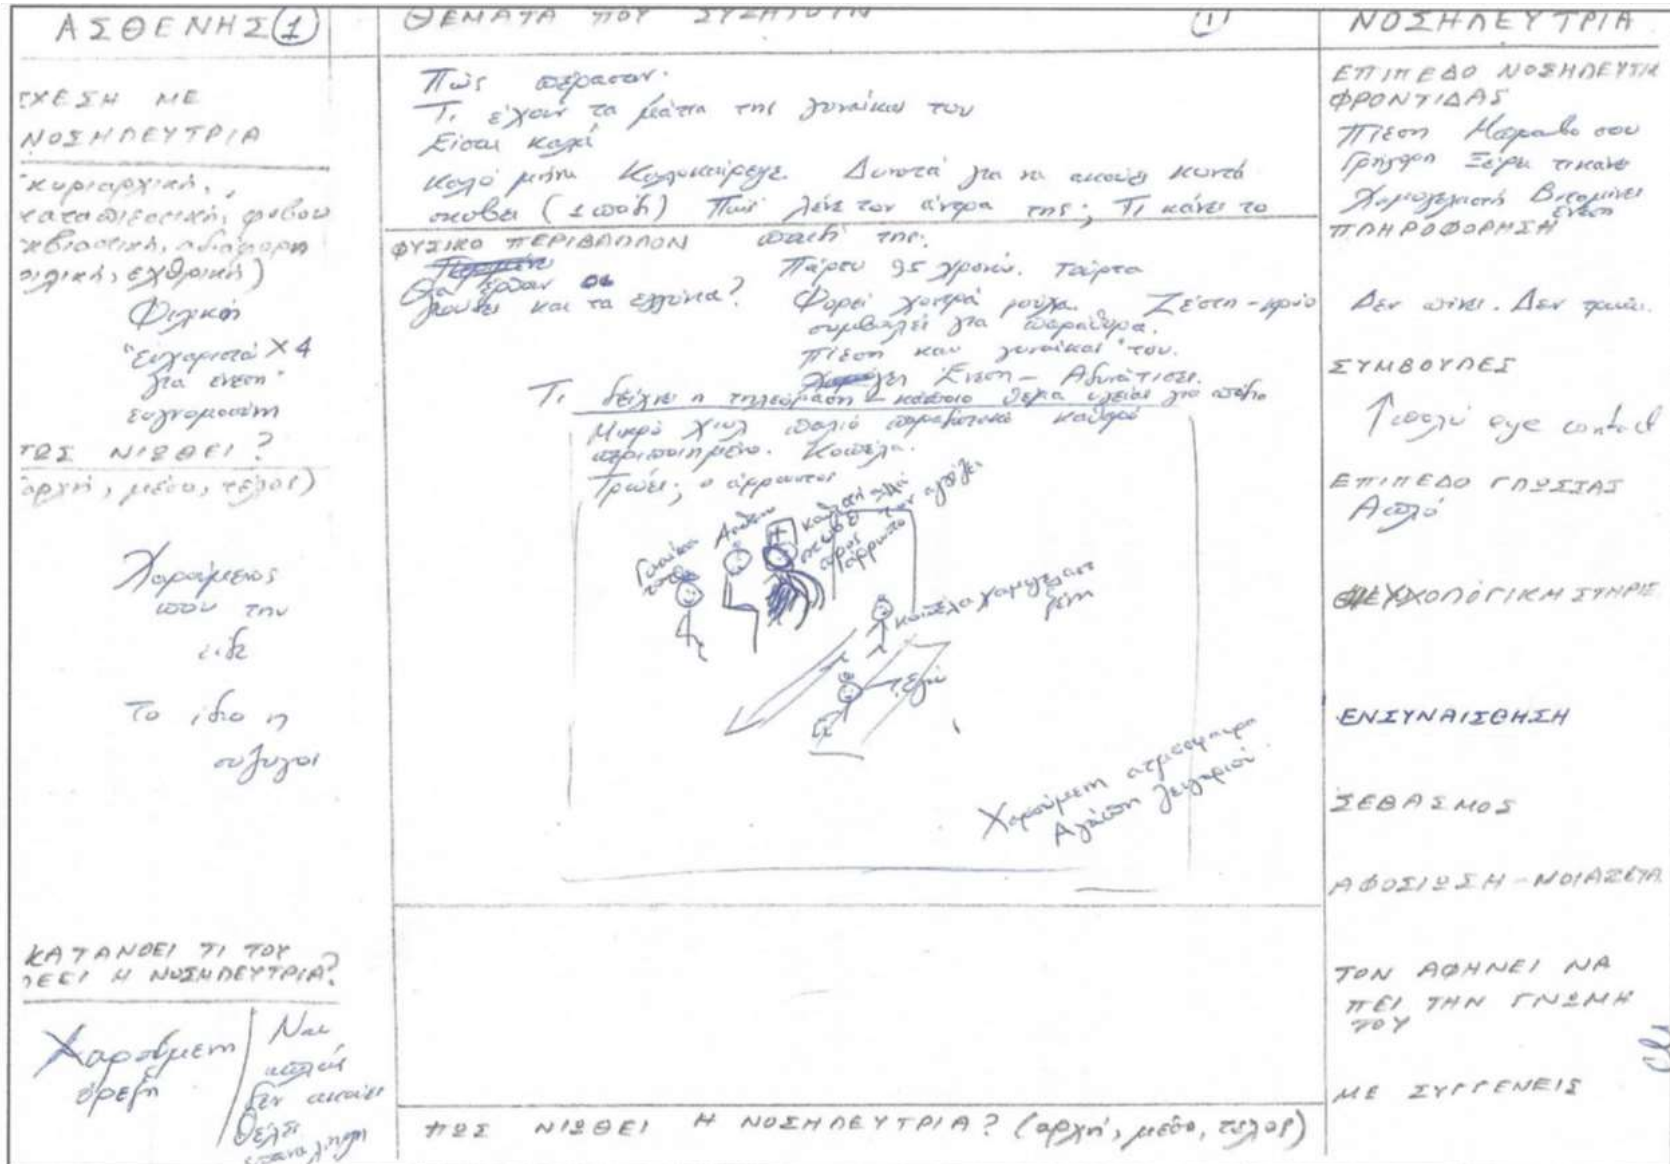 ΑΣΘΕΝΗΣ ①
ΣΧΕΣΗ ΜΕ
ΝΟΣΗΛΕΥΤΡΙΑ
κυριαρχική,
καταπιεστική, φοβου
εκβιαστική, αδιάφορη
φιλική, εχθρική)
Φιλική
"Ευχαριστώ Χ4
για ένεση"
ευγνωμοσύνη
ΠΩΣ ΝΙΩΘΕΙ?
(αρχή, μέσο, τέλος)
Χαρούμενος
που την
είδε
Το ίδιο η
σύζυγος
ΚΑΤΑΝΟΕΙ ΤΙ ΤΟΥ
ΛΕΕΙ Η ΝΟΣΗΛΕΥΤΡΙΑ?
Χαρούμενη
όρεξη
Ναι
απλώς
δεν ακούει
Θέλει
επανάληψη
ΘΕΜΑΤΑ ΠΟΥ ΣΥΖΗΤΟΥΝ (1)
Πώς πέρασαν.
Τι έχουν τα μάτια της γυναίκας του
Είσαι καλά
Καλό μήνα Καλοκαίρεψε. Δυνατά για να ακούει κοντά
σκύβει (1 πόδι) Πώς λένε τον άντρα της; Τι κάνει το
παιδί της.
ΦΥΣΙΚΟ ΠΕΡΙΒΑΛΛΟΝ
Θα έρθουν οι
και τα εγγόνια?
Πάρτυ 95 χρονών. Τούρτα
Φορεί χοντρά ρούχα. Ζέστη - κρύο
συμβουλεί για παράθυρα.
Πίεση και γυναίκας του.
Ένεση - Αδυνάτισες.
Τι δείχνει η τηλεόραση - κάποιο θέμα υγείας για πόδια
Μικρό χωλ παλιό παραδοσιακό καθαρό
περιποιημένο. Κοπέλα.
Τρώει; ο άρρωστος
Γυναίκα
του
Ασθενή
καθιστή αλλά
σκύβει
προς
άρρωστο
τον αγγίζει
κοπέλα χαμογελαστή
ξένη
εγώ
Χαρούμενη ατμόσφαιρα
Αγάπη ζευγαριού
ΠΩΣ ΝΙΩΘΕΙ Η ΝΟΣΗΛΕΥΤΡΙΑ? (αρχή, μέσο, τέλος)
ΝΟΣΗΛΕΥΤΡΙΑ
ΕΠΙΠΕΔΟ ΝΟΣΗΛΕΥΤΙΚ
ΦΡΟΝΤΙΔΑΣ
Πίεση σου
Γρήγορη Ξέρει τι κάνει
Χαμογελαστή Βιταμίνες
ένεση
ΠΛΗΡΟΦΟΡΗΣΗ
Δεν πίνει. Δεν τρώει.
ΣΥΜΒΟΥΛΕΣ
↑ πολύ eye contact
ΕΠΙΠΕΔΟ ΓΛΩΣΣΑΣ
Απλό
ΨΥΧΟΛΟΓΙΚΗ ΣΤΗΡΙΞ
ΕΝΣΥΝΑΙΣΘΗΣΗ
ΣΕΒΑΣΜΟΣ
ΑΦΟΣΙΩΣΗ - ΝΟΙΑΖΕΤΑ
ΤΟΝ ΑΦΗΝΕΙ ΝΑ
ΠΕΙ ΤΗΝ ΓΝΩΜΗ
ΤΟΥ
ΜΕ ΣΥΓΓΕΝΕΙΣ